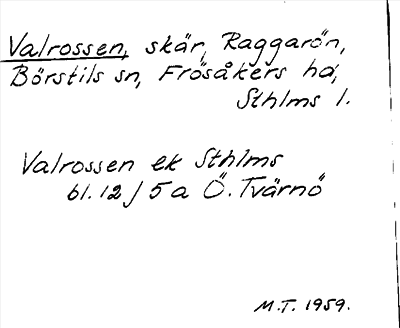 Valrossen, skär, Raggarön,
Börstils sn, Frösåkers hd,
Sthlms l.
Valrossen ek Sthlms
bl. 12 / 5 a Ö. Tvärnö
M.T. 1959.